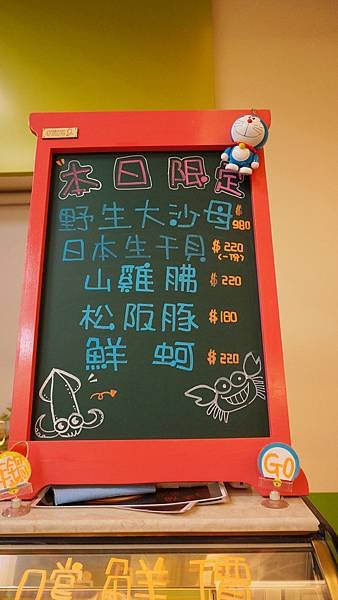 本日限定
野生大沙母 $980
日本生干貝 $220
(一份)
山雞腿 $220
松阪豚 $180
鮮蚵 $220
GO
嚐鮮價